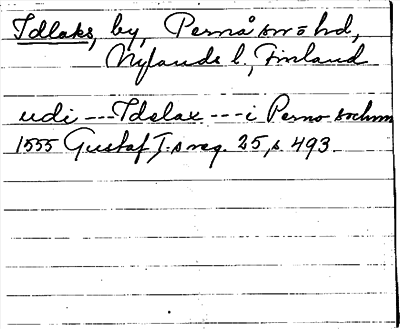 Idlaks, by, Pernå sn o hd,
Nylands l., Finland
udi --- Idslax --- i Perno sochnn
1555 Gustaf I:s reg. 25, s 493.